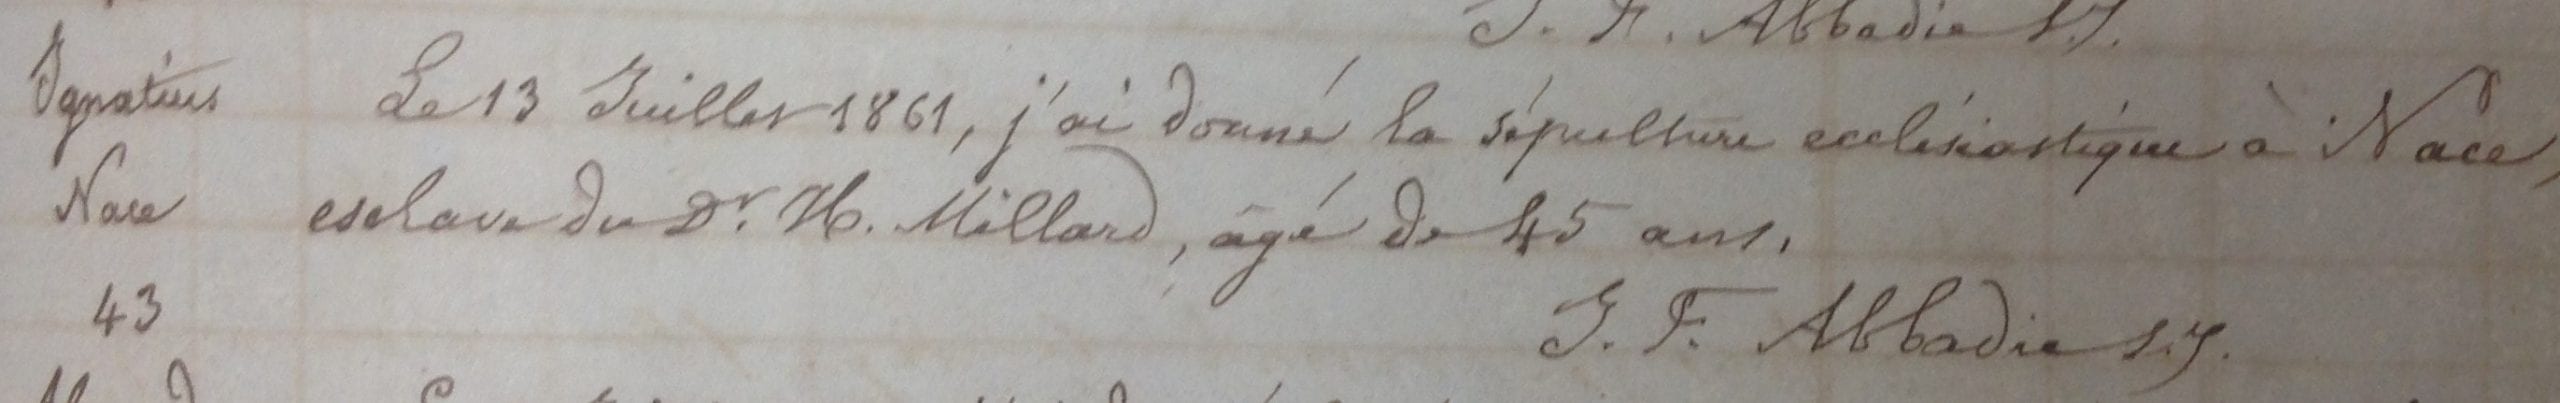 J. F. Abbadie S.J.
Ignatius Le 13 Juillet 1861, j'ai donné la sépulture ecclésiastique à Nace,
Nace esclave du Dr. H. Millard, âgé de 45 ans.
43 J. F. Abbadie S.J.